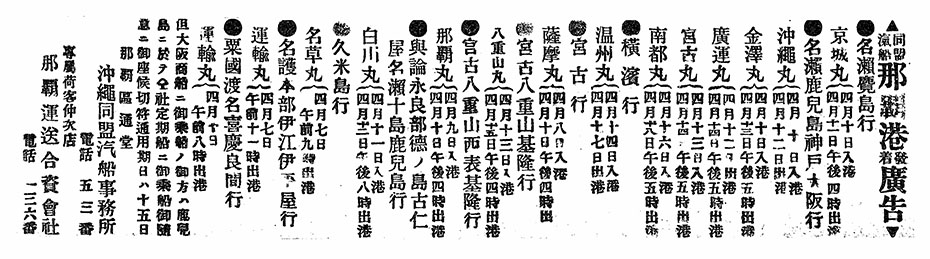 ▲同盟汽船那覇港發着廣告▼
●名瀨鹿兒島行
京城丸 四月十一日入港 四月十二日午後四時出港
●名瀨鹿兒島神戶大阪行
沖繩丸 四月十日入港 四月十二日出港
金澤丸 四月十日入港 四月十二日午後五時出港
廣運丸 四月十三日入港 四月十四日午後五時出港
宮古丸 四月十三日入港 四月十四日午後五時出港
南都丸 四月十六日入港 四月十八日午後五時出港
●橫濱行
溫州丸 四月十六日入港 四月十七日出港
●宮古行
薩摩丸 四月八日入港 四月十日午後四時出港
●宮古八重山基隆行
八重山丸 四月十三日入港 四月十五日午後四時出港
●宮古八重山西表基隆行
那覇丸 四月九日入港 四月十日午後四時出港
●與論永良部德ノ島古仁屋名瀨十島鹿兒島行
白川丸 四月十一日入港 四月十三日午後八時出港
●久米島行
名草丸 四月七日 午前九時出港
●名護本部伊江伊平屋行
運輸丸 四月七日 午前十一時出港
●粟國渡名喜慶良間行
運輸丸 四月十日 午前八時出港
但大阪商船ニ御乘船ノ御方ハ鹿兒
島ニ於テ仝社定期船ニ御乘船御隨
意ニ御座候切符通用期日ハ十五日
那覇區通堂
沖繩同盟汽船事務所
電話 五三番
專屬荷客仲次店
那覇運送合資會社
電話 二三六番